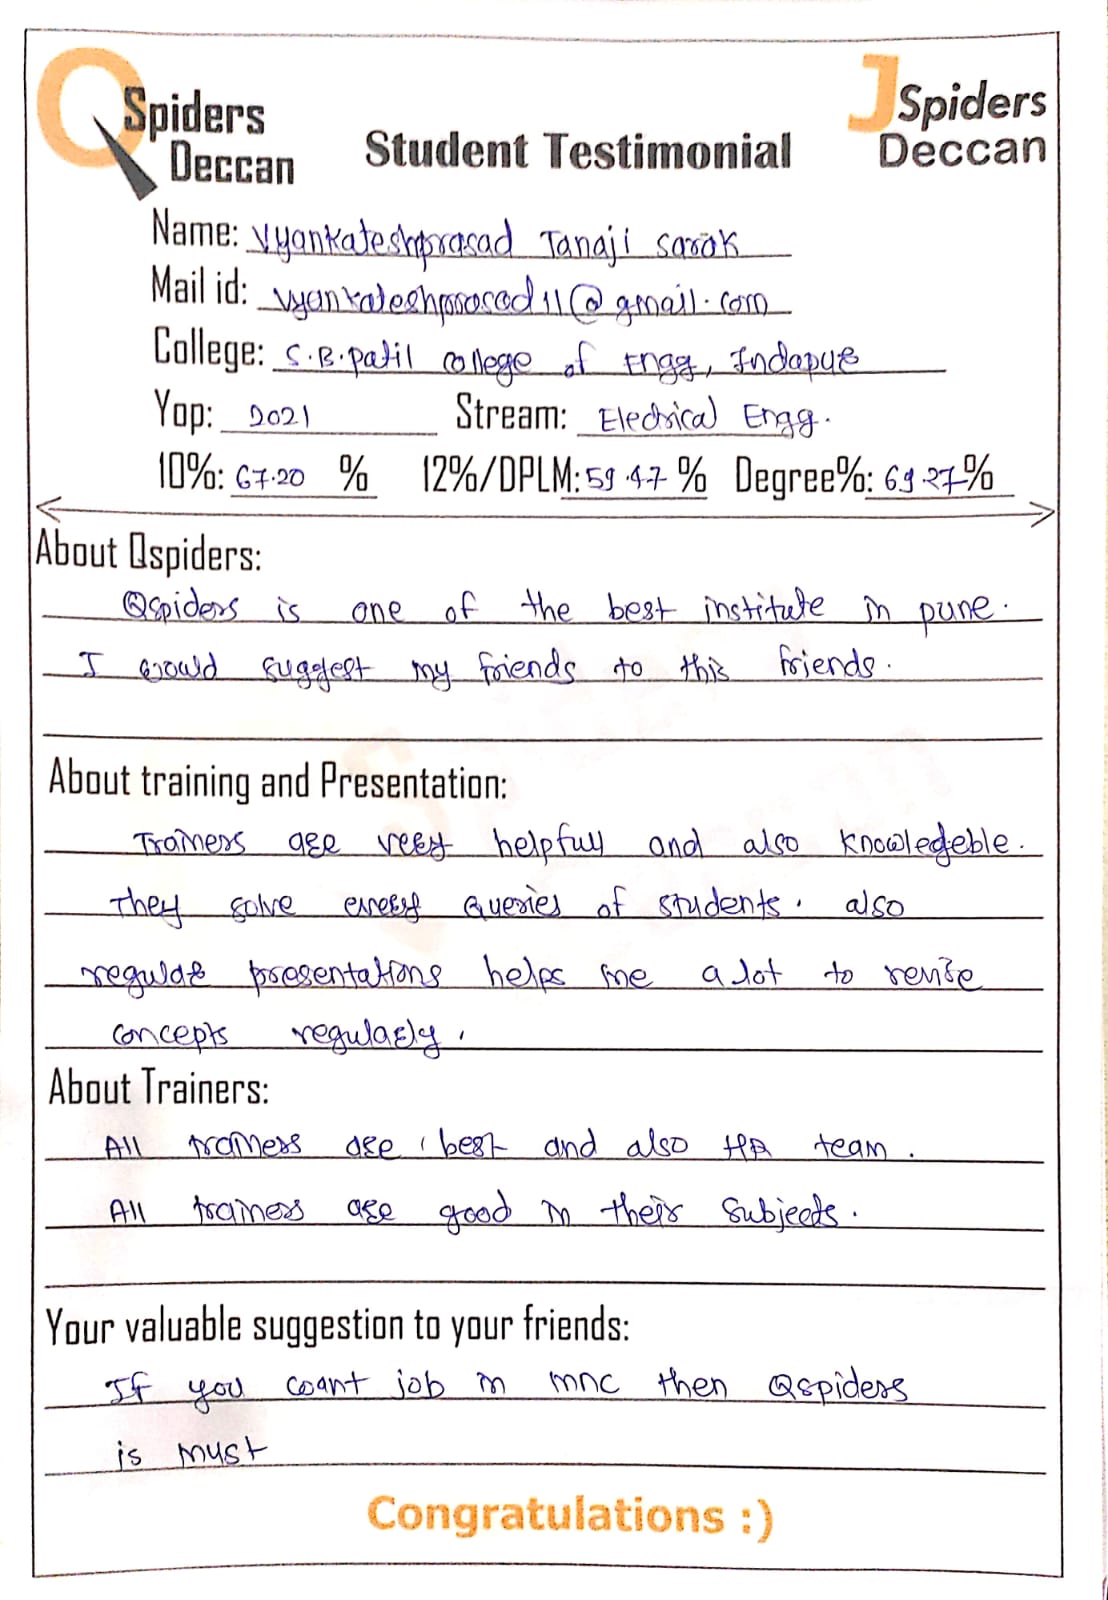 QSpiders Deccan
Student Testimonial
JSpiders Deccan
Name: Vyankateshprasad Tanaji Sarak
Mail id: vyankateshprasad11@gmail.com
College: S.B.Patil College of Engg, Indapur
Yop: 2021 Stream: Electrical Engg.
10%: 67.20 % 12%/DPLM: 59.47 % Degree%: 69.27%
About Qspiders:
Qspiders is one of the best institute in pune.
I would suggest my friends to this friends.
About training and Presentation:
Trainers are very helpfull and also knowledgeble.
They solve every queries of students. also
regular presentations helps me a lot to revise
concepts regularly.
About Trainers:
All trainers are best and also HR team.
All trainers are good in their subjects.
Your valuable suggestion to your friends:
If you want job in mnc then Qspiders
is must
Congratulations :)